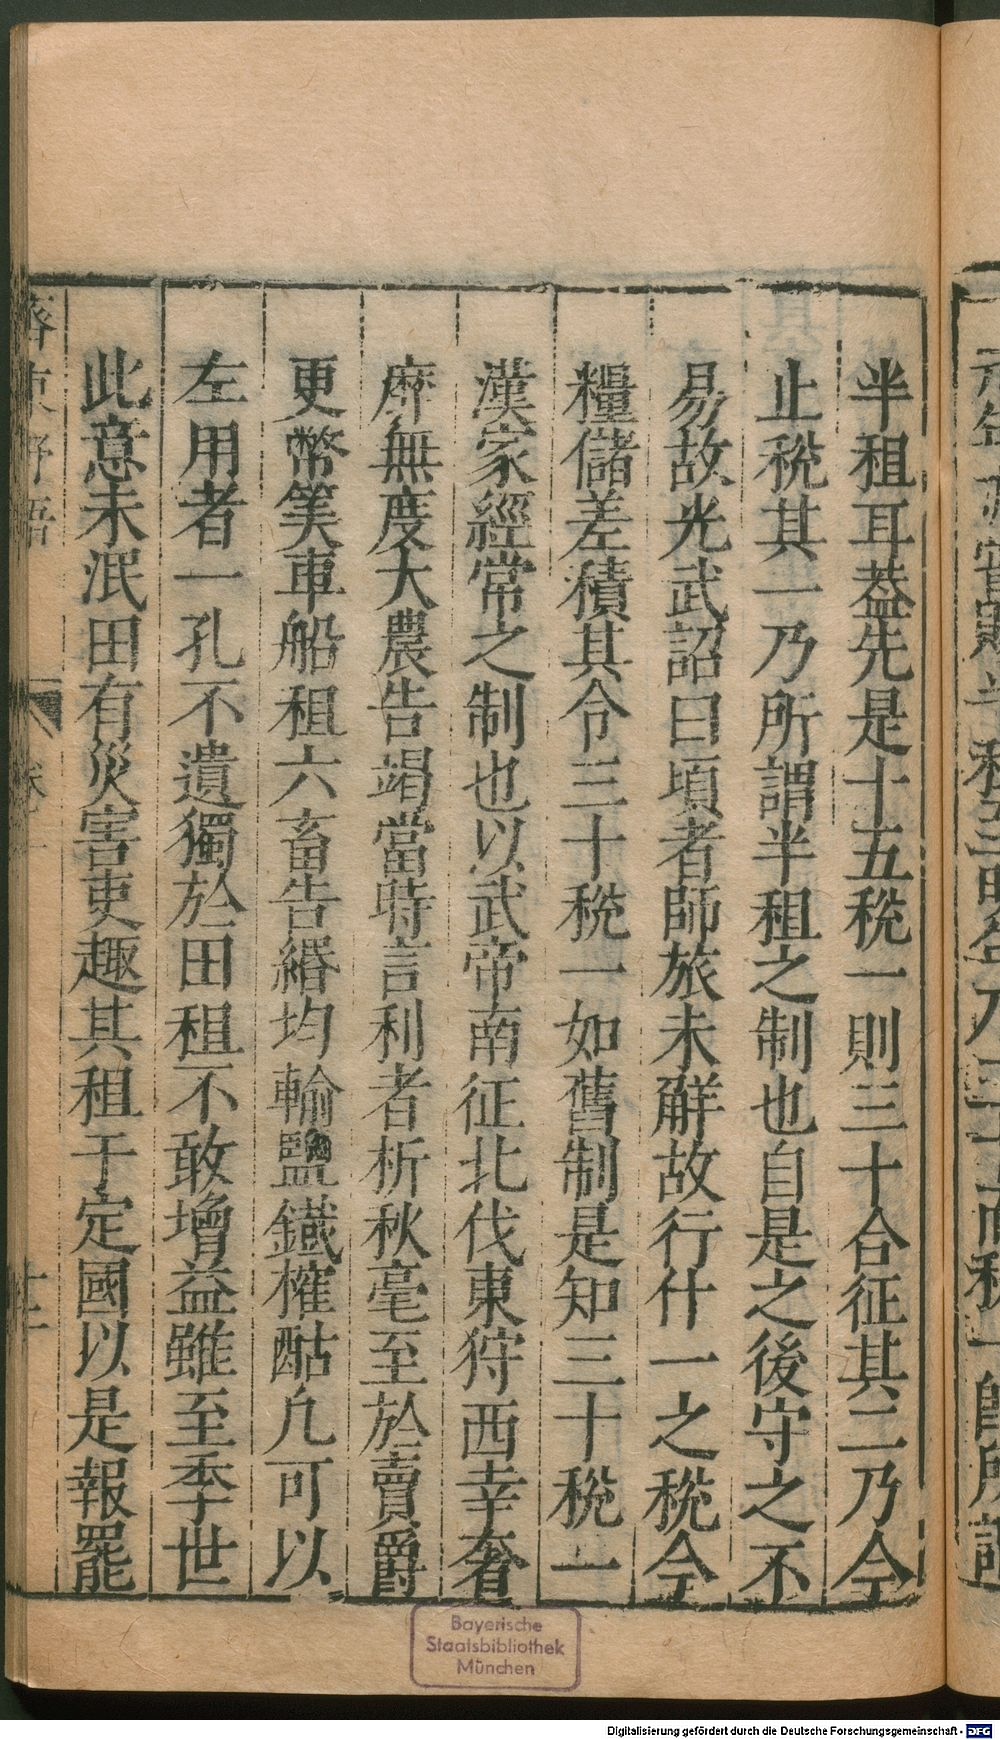 半租耳葢先是十五稅一則三十合征其二乃今
止稅其一乃所謂半租之制也自是之後守之不
易故光武詔曰頃者師旅未觧故行什一之稅今
糧儲差積其令三十稅一如舊制是知三十稅一
漢家經常之制也以武帝南征北伐東狩西幸奢
靡無度大農告竭當時言利者析秋毫至於賣爵
更幣筭車船租六畜告緡均輸鹽鐵榷酤凢可以
左用者一孔不遺獨於田租不敢增益雖至季世
此意未泯田有災害吏趣其租于定國以是報罷
齊東野語
卷一
十二
Bayerische
Staatsbibliothek
München
Digitalisierung gefördert durch die Deutsche Forschungsgemeinschaft - DFG